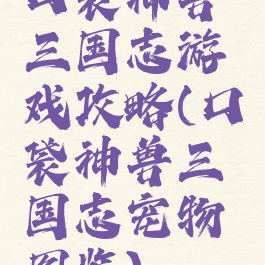 口袋神兽
三国志游
戏攻略(口
袋神兽三
国志宠物
图鉴)